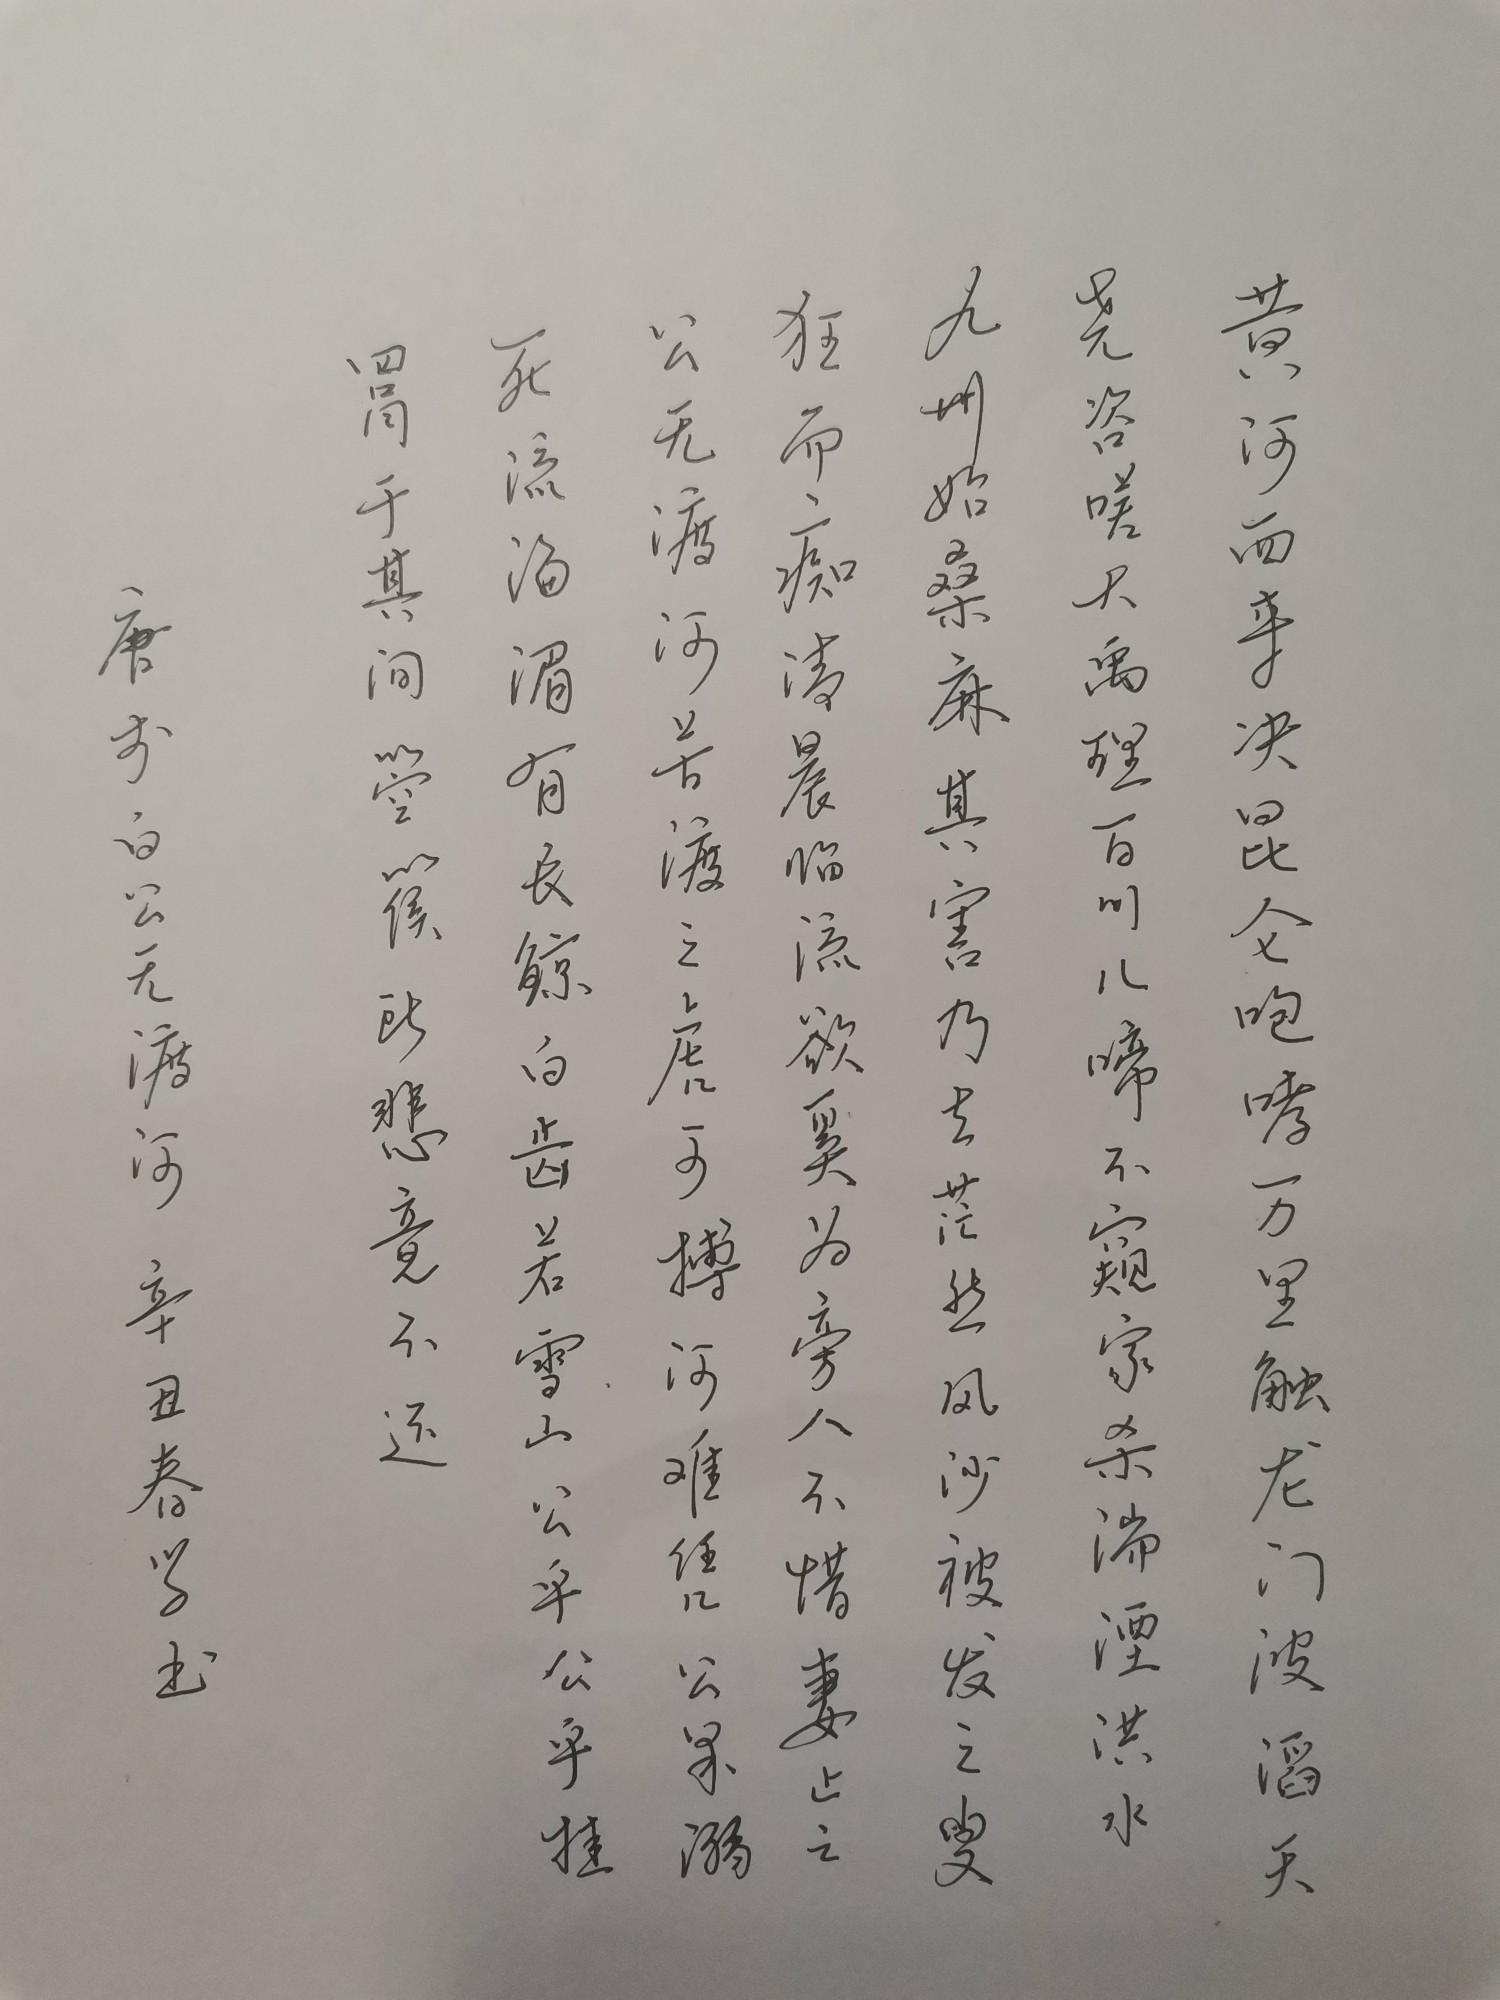 黄河西来决昆仑咆哮万里触龙门波滔天
尧咨嗟大禹理百川儿啼不窥家杀湍湮洪水
九州始桑麻其害乃去茫然风沙被发之叟
狂而痴清晨临流欲奚为旁人不惜妻止之
公无渡河苦渡之虎可搏河难凭公果溺
死流海湄有长鲸白齿若雪山公乎公乎挂
罥于其间箜篌所悲竟不还
唐李白公无渡河 辛丑春学书